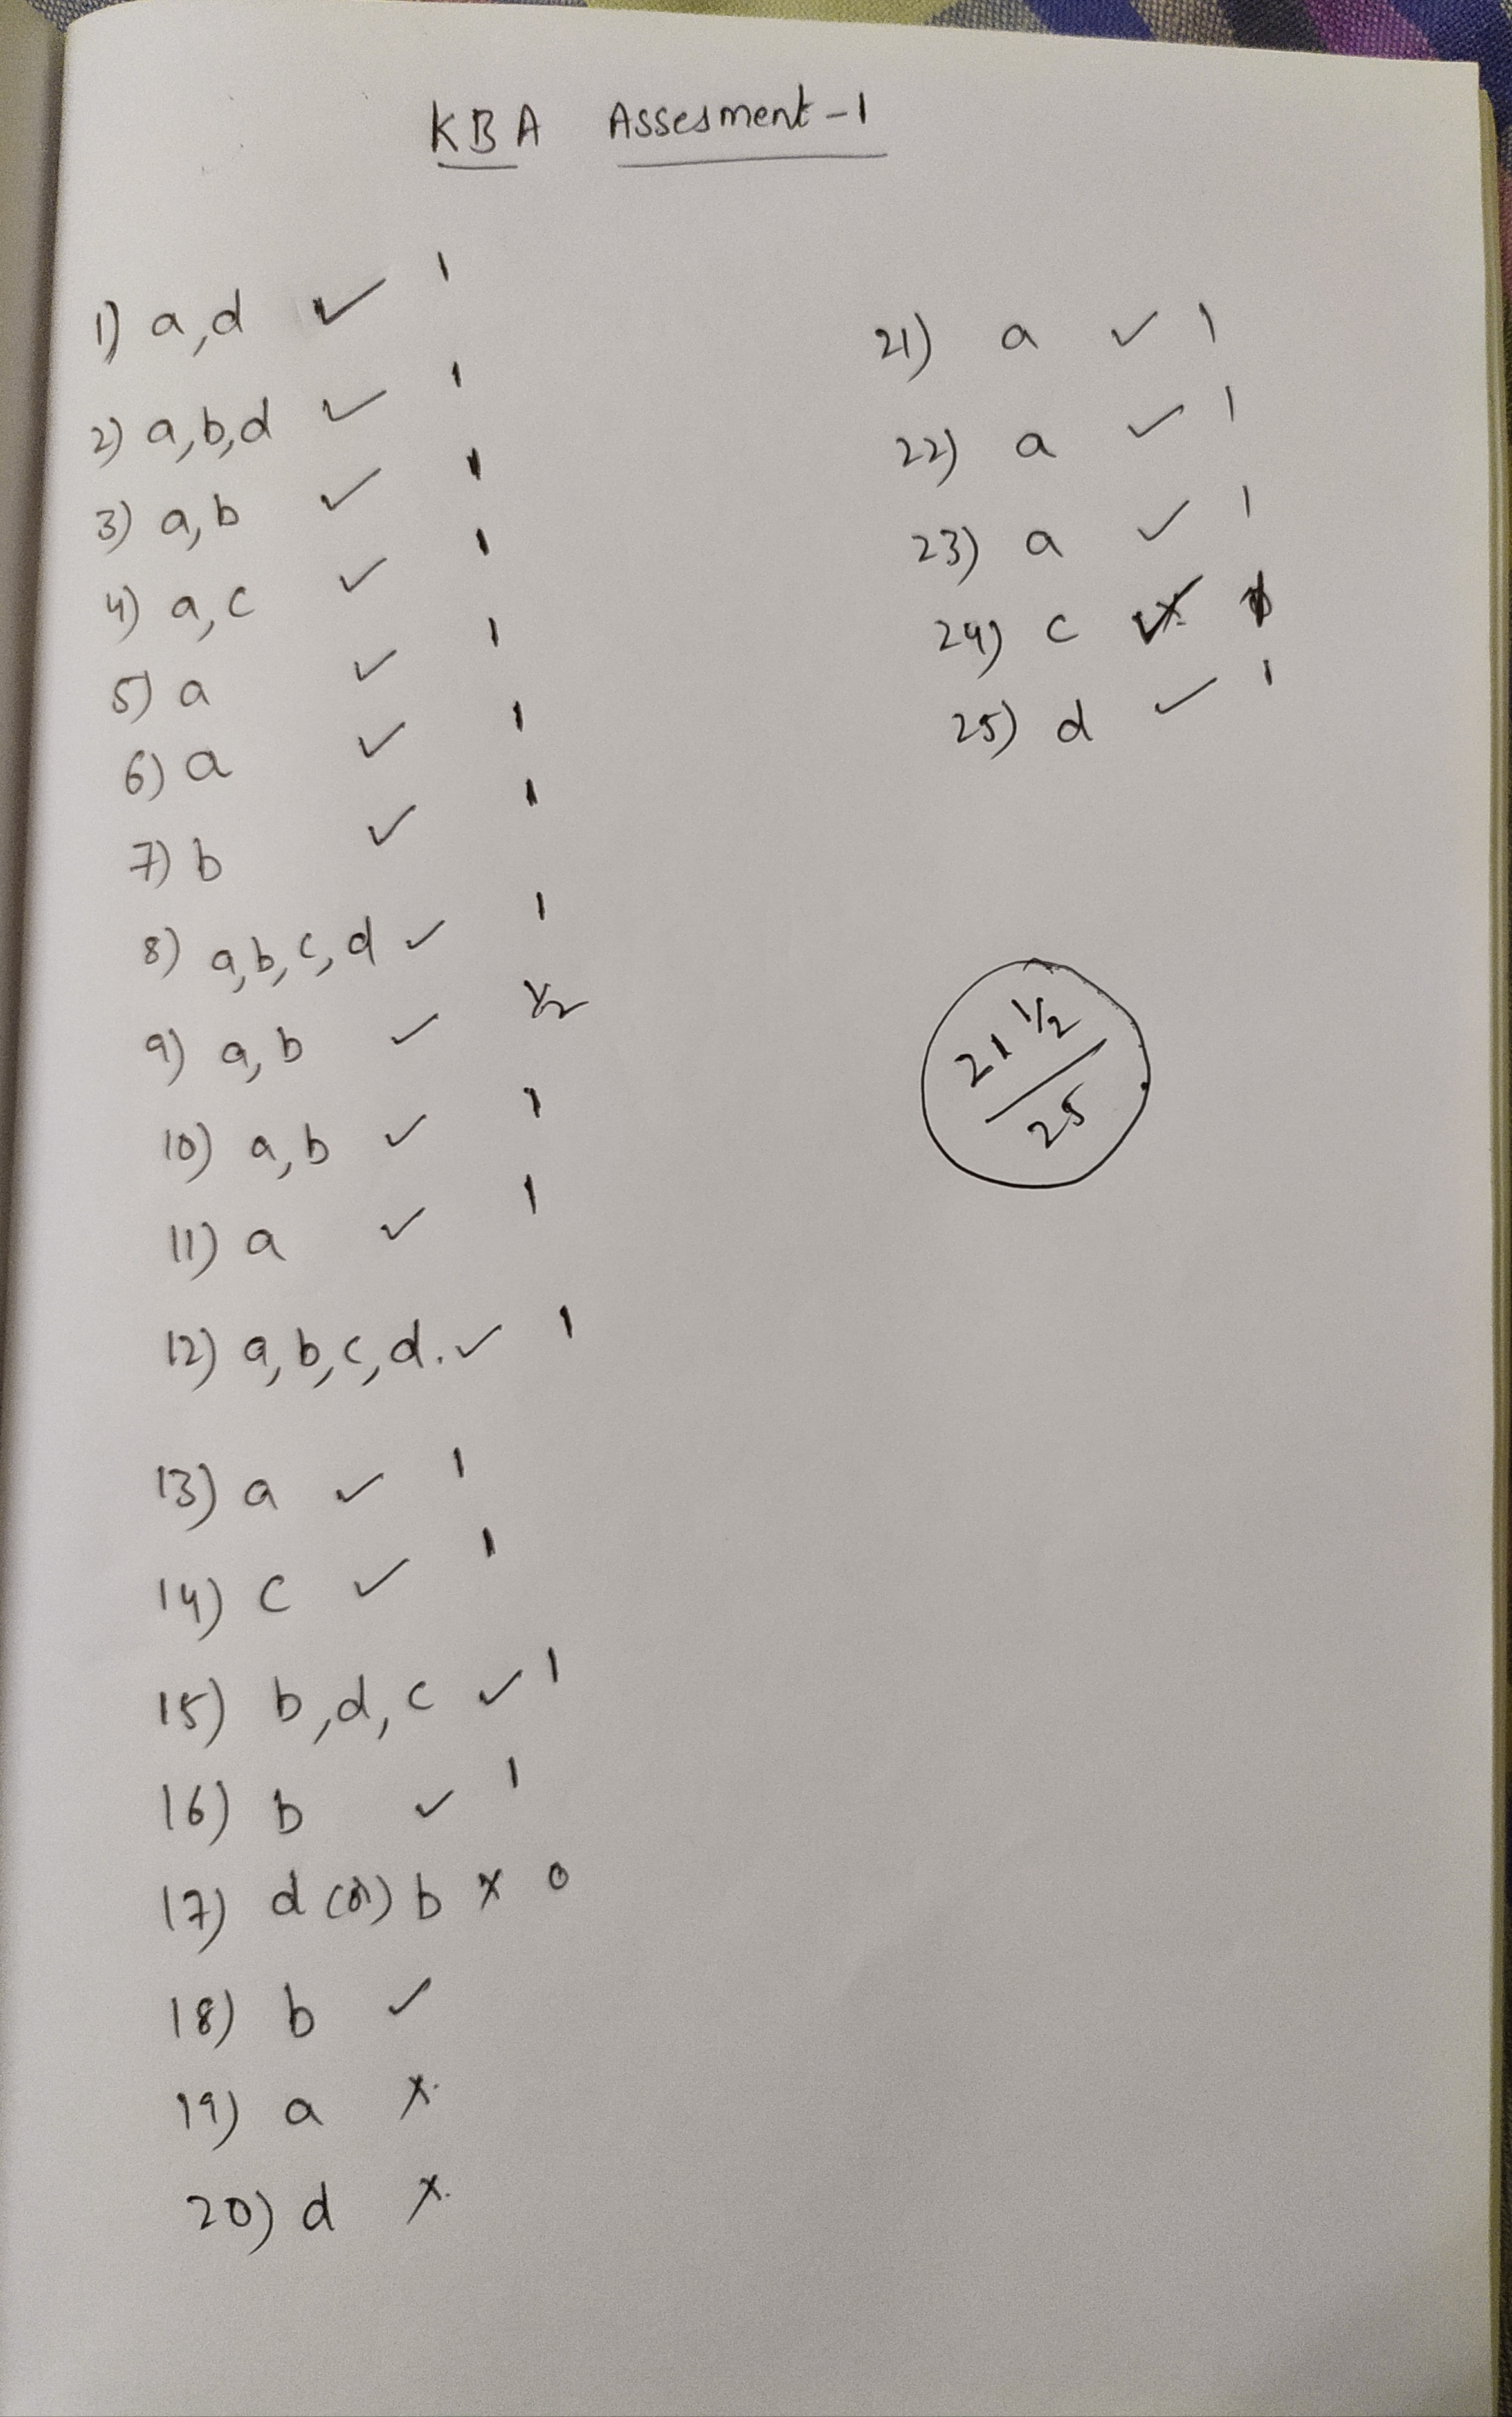 KBA Assesment-1
1) a,d ✓ 1
2) a,b,d ✓ 1
3) a,b ✓ 1
4) a,c ✓ 1
5) a ✓ 1
6) a ✓ 1
7) b ✓ 1
8) a,b,c,d ✓ 1
9) a,b ✓ 1/2
10) a,b ✓ 1
11) a ✓ 1
12) a,b,c,d. ✓ 1
13) a ✓ 1
14) c ✓ 1
15) b,d,c ✓ 1
16) b ✓ 1
17) d (or) b x 0
18) b ✓
19) a x.
20) d x.
21) a ✓ 1
22) a ✓ 1
23) a ✓ 1
24) c x
25) d ✓ 1
21 1/2
25